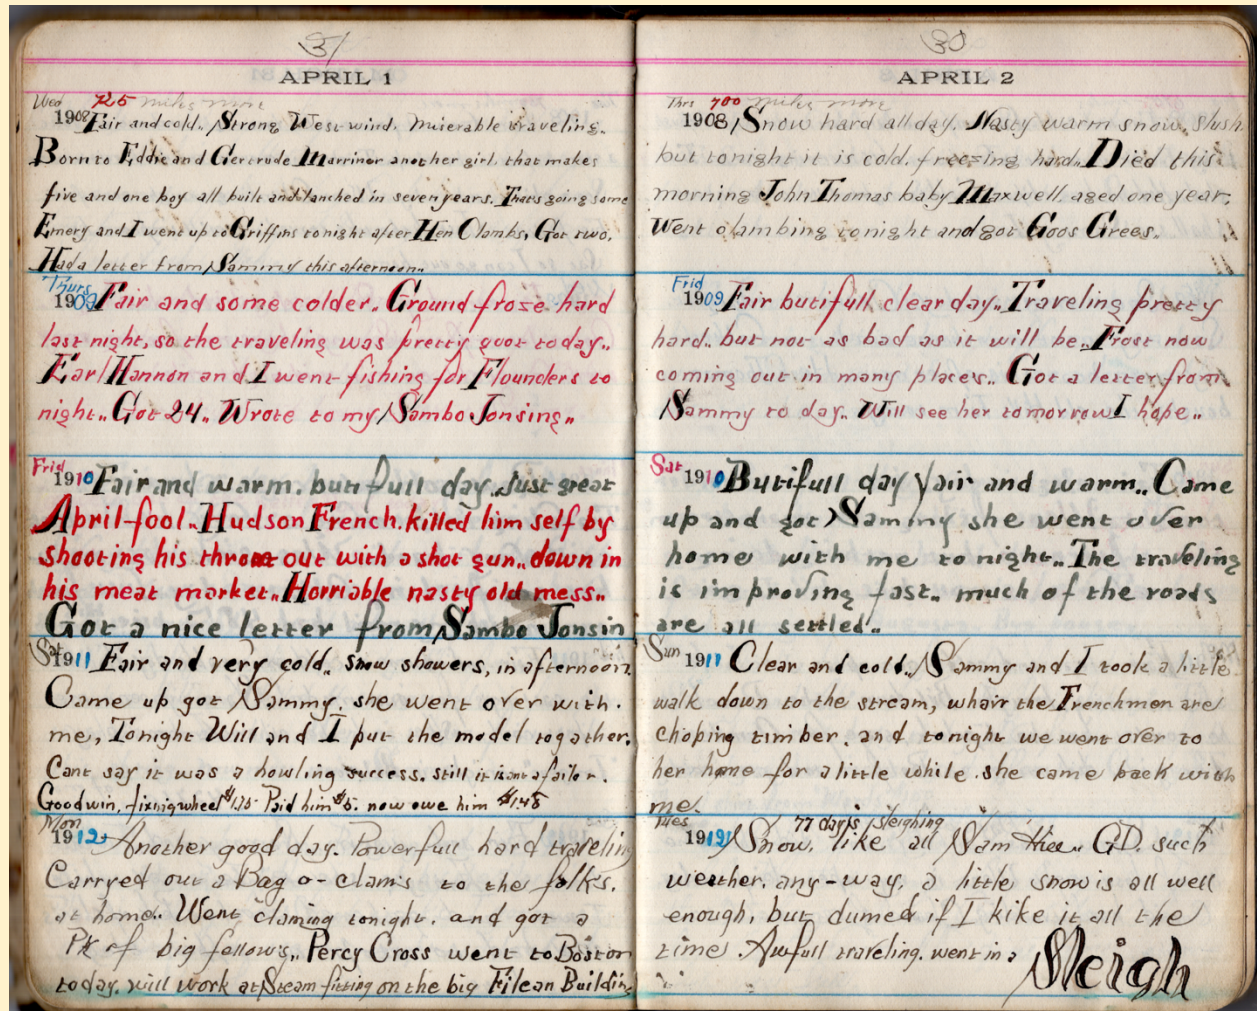 31
APRIL 1
Wed 725 miles more
1908 Fair and cold.. Strong West wind. Mierable traveling..
Born to Eddie and Gertrude Marriner another girl, that makes
five and one boy all built and lanched in seven years. Thats going some
Emery and I went up to Griffins tonight after Hen Clambs, Got two.
Had a letter from Sammy this afternoon..
Thurs
1909 Fair and some colder.. Ground froze hard
last night, so the traveling was pretty goot today..
Earl Hannon and I went fishing for Flounders to
night.. Got 24.. Wrote to my Sambo Jonsing..
Frid
1910 Fair and warm. butifull day.. Just great
April-fool.. Hudson French. killed him self by
shooting his throat out with a shot gun.. down in
his meat market.. Horriable nasty old mess..
Got a nice letter from Sambo Jonsin
Sat
1911 Fair and very cold.. snow showers, in afternoon.
Came up got Sammy, she went over with.
me, Tonight Will and I put the model togather.
Cant say it was a howling success. still it isant a failor.
Goodwin, fixinig wheel $1.75 Paid him $5. now owe him $1.48
Mon
1912 Another good day. Powerfull hard traveling
Carryed out a Bag o-clams to the folks.
at home.. Went claming tonight. and got a
Pk of big fellows.. Percy Cross went to Boston
today. will work at Steam fitting on the big Filean Building
30
APRIL 2
Thrs 700 miles more
1908 Snow hard all day. Nasty warm snow, slush
but tonight it is cold. freezing hard.. Died this
morning John Thomas baby Maxwell, aged one year.
Went clambing tonight and got Goos Grees..
Frid
1909 Fair butifull clear day.. Traveling pretty
hard.. but not as bad as it will be.. Frost now
coming out in many places.. Got a letter from
Sammy to day.. Will see her tomorrow I hope..
Sat
1910 Butifull day fair and warm.. Came
up and got Sammy she went over
home with me to night.. The traveling
is improving fast.. much of the roads
are all settled..
Sun
1911 Clear and cold.. Sammy and I took a little
walk down to the stream, whair the Frenchmen are
choping timber. and tonight we went over to
her home for a little while. she came back with
me.
Tues 77 days sleighing
1912 Snow, like all Sam Hill.. GD. such
weather. any-way. a little snow is all well
enough, but dumed if I kike it all the
time. Awfull traveling. went in a Sleigh